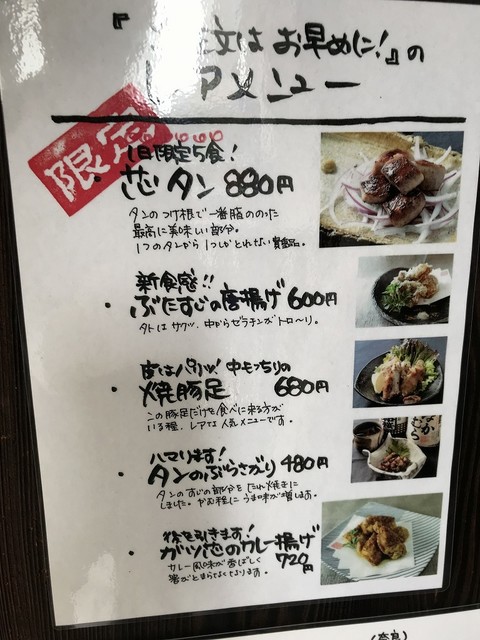 『 注文は お早めに!』の
レアメニュー
限定
1日限定5食!
芯タン 880円
タンのつけ根で一番脂ののった
最高に美味しい部分。
1つのタンから1つしかとれない貴重品。
新食感!!
・ぶたすじの唐揚げ 600円
外はサクッ、中からゼラチンがトロ〜リ。
皮はパリッ! 中もっちりの
・焼豚足 680円
この豚足だけを食べに来る方が
いる程、レアな人気メニューです。
ハマります!
・タンのぶらさがり 480円
タンのすじの部分をたれ焼きに
しました。かむ程にうま味が増します。
後を引きます!
・ガツ芯のカレー揚げ
720円
カレー風味が香ばしく
箸がとまらなくなります。
(奈良)